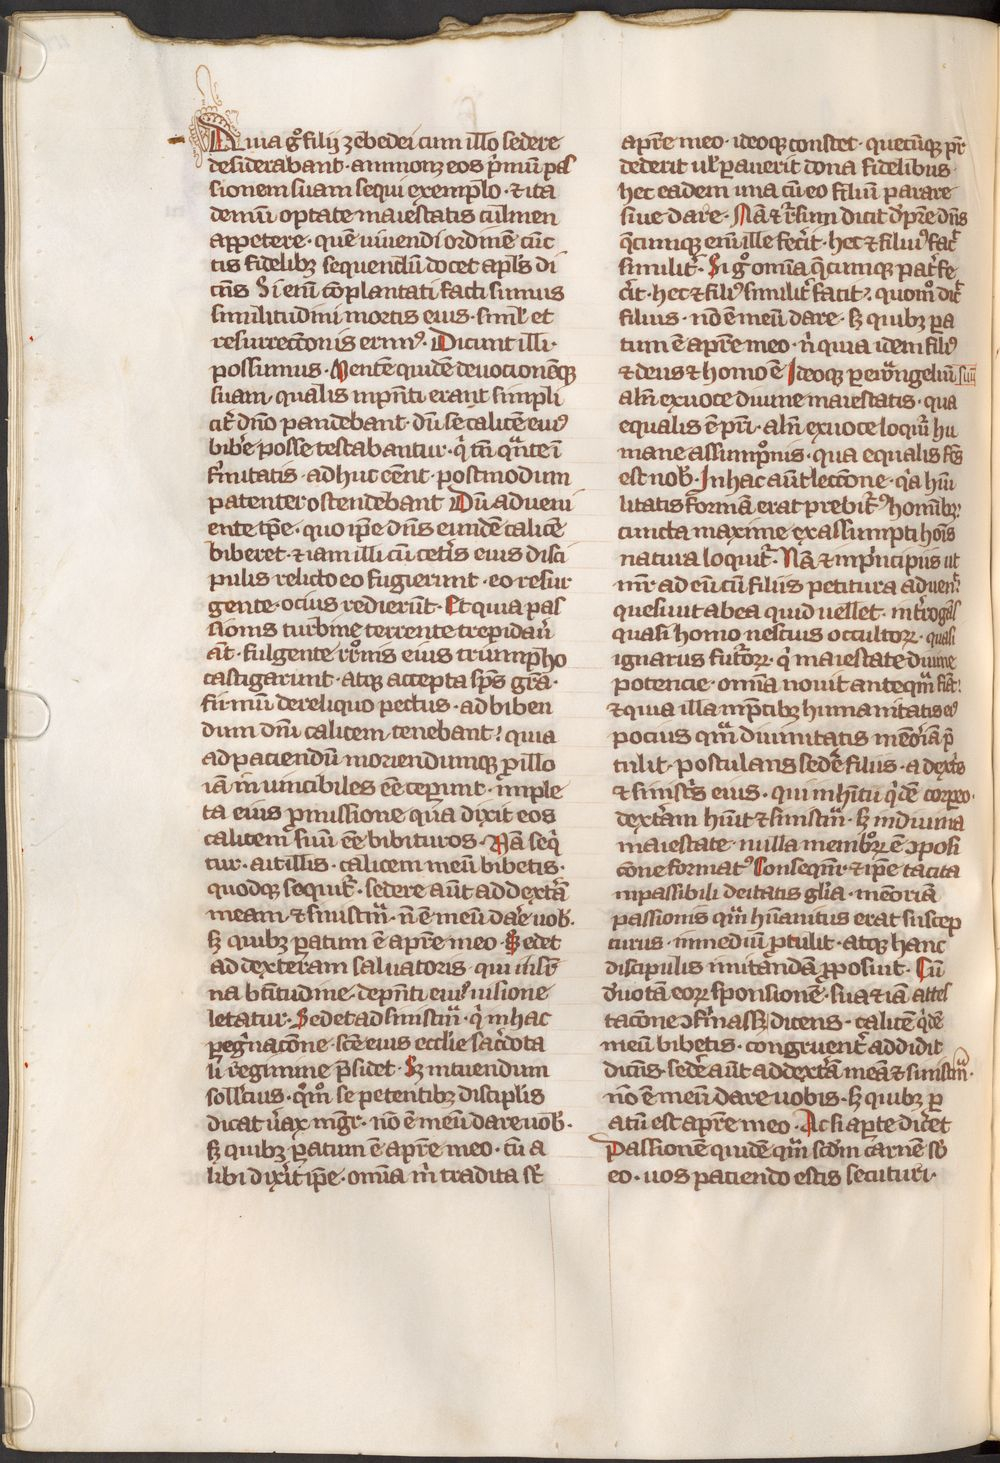 Quia gͦ filij zebedei cum illo sedere
desiderabant · ammonꝫ eos p̄mum pas
sionem suam sequi exemplo · ⁊ ita
demum optate maiestatis culmen
appetere · quē uiuendi ordinē cunc
tis fidelibꝫ sequendū docet apl̄s di
cēs Si enī cōplantati facti sumus
similitudini mortis eius · siml̄ et
resurrecconis erimꝰ · Dicunt illi ·
possumus · Mentē quidē deuocionēqꝫ
suam · qualis inpn̄ti erant simpli
cit̄ dn̄o pandebant · dū se calicē eiꝰ
bibe posse testabantur · q̄ tn̄ qͣnte ī
firmitatis · adhuc cēnt · postmodum
patenter ostendebant Dū adueni
ente tp̄e · quo ip̄e dn̄s eundē calicē
biberet · ⁊ iam illi cū cet̄is eius disci
pulis relicto eo fugierunt · eo resur
gente · ocius redierūt · Et quia pas
sionis turbine terrente trepidaū
ant · fulgente rr̄onis eius triumpho
castigarunt · atqꝫ accepta sp̄s gr̄a ·
firmū dereliquo pectus · ad biben
dum dn̄i calicem tenebant · quia
ad paciendū moriendumqꝫ p illo
iā inuincibiles eē ceperunt · imple
ta eius pmissione qua dixit eos
calicem suū eē bibituros · Nā seq̄
tur · ait illis · calicem meū bibetis ·
quodqꝫ sequit̄ · sedere aūt ad dextā
meam ⁊ sinistrā · n̄ ē meū dare uob̄ ·
sꝫ quibꝫ paratum ē a pr̄e meo · Sedet
ad dexteram saluatoris · qui in sr̄
na bt̄itudine · de pn̄ti eiꝰ uisione
letatur · Sedet ad sinistrā · q̄ in hac
pegnacōne · sc̄e eius eccl̄ie sac̄dota
li regimine p̄sidet · Sꝫ intuendum
soll̄cius · qͦmͦ se petentibꝫ discipl̄is
dicat u̇ax mgr̄ · nō ē meū dare uob̄ ·
sꝫ quibꝫ paratum ē a pr̄e meo · cū a
libi dix̄it ip̄e · om̄ia m̄ tradita st̄
a pr̄e meo · ideoqꝫ constet · quecūqꝫ pr̄
dederit ul̄ parauerit dona fidelibus ·
hec eadem una cū eo filiū parare
siue dare · Nā ⁊ r̄sum dicit de pr̄e dn̄s
q̄cumqꝫ enī ille fec̄it · hec ⁊ filiꝰ fac̄
similit̄ · Si gͦ om̄ia q̄cumqꝫ pat̄ fe
c̄it · hec ⁊ filiꝰ similit̄ facit · quomͦ dic̄
filius · nō ē meū dare · sꝫ quibꝫ pa
tum ē a pr̄e meo · n̄ quia idem filiꝰ
⁊ deus ⁊ homo ē Ideoqꝫ p euͣngelium suū
aln̄ ex uoce diuine maiestatis · qua
equalis ē pr̄i · aln̄ ex uoce loquit̄ hu
mane assumpͦnis · qua equalis fc̄s
est nob̄ · In hac aūt leccōne · q̄a hūi
litatis formā erat prebitꝰ homībꝫ ·
cuncta maxime ex assumpti hoīs
natura loquit̄ · Nā ⁊ in p̄ncipiis ut
mr̄ ad eū cū filiis petitura aduen̄ ·
quesiuit ab ea quid uellet · int̄rogās
quasi homo nescius occultoꝝ · quasi
ignarus futuroꝝ · q̄ maiestate diuine
potencie · om̄ia nouit anteqͣm fiāt ·
⁊ quia illa inp̄cibꝫ humanitatis eiꝰ
pocius qͣm diuinitatis mēoriā p̄
tulit · postulans sedē filius · a dextīs
⁊ sinistīs eius · qui in hītu q̄dē corpeo ·
dextām hūit ⁊ sinistrā · sꝫ in diuina
maiestate · nulla membroꝝ ē ɔposi
cōne formatꝰ Consequent̄ ⁊ ip̄e tacita
inpassibili deitatis gl̄ia · mēoriā
passionis qͣm hūanitus erat suscep
turus · in mediū ptulit · atqꝫ hanc
discipulis imitandā pposuit · Cū
deuotā eoꝝ sponsionē · sua ⁊ iā attes
tacōne ɔfirmassꝫ dicens · calicē q̄dē
meū bibetis · congruent̄ addidit
dicēs · sedere aūt ad dextā meā ⁊ sinistrā ·
nō ē meū dare uobis · sꝫ quibꝫ p
atū est a pr̄e meo · Ac si apte dic̄et
Passionē quidē qͣm sc̄dm carnē sb̄
eo · uos paciendo estis secuturi ·